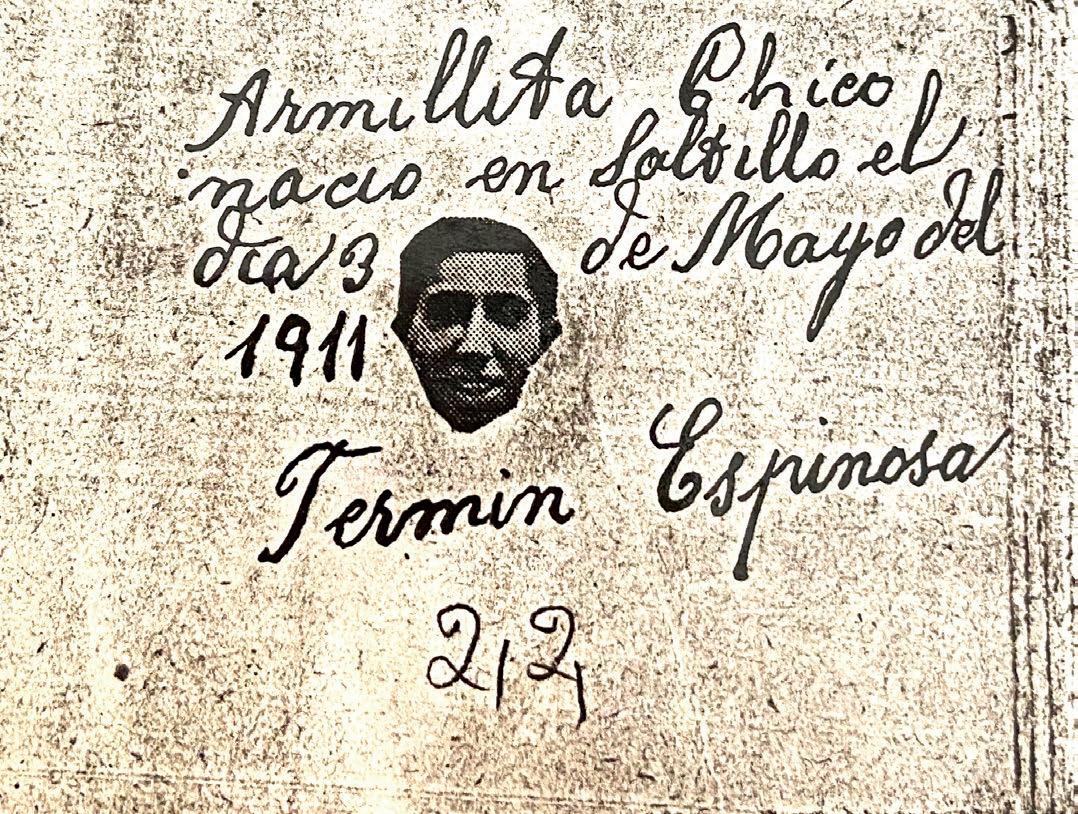 Armillita Chico
nacio en Saltillo el
dia 3 de Mayo del
1911
Fermin Espinosa
2,2,